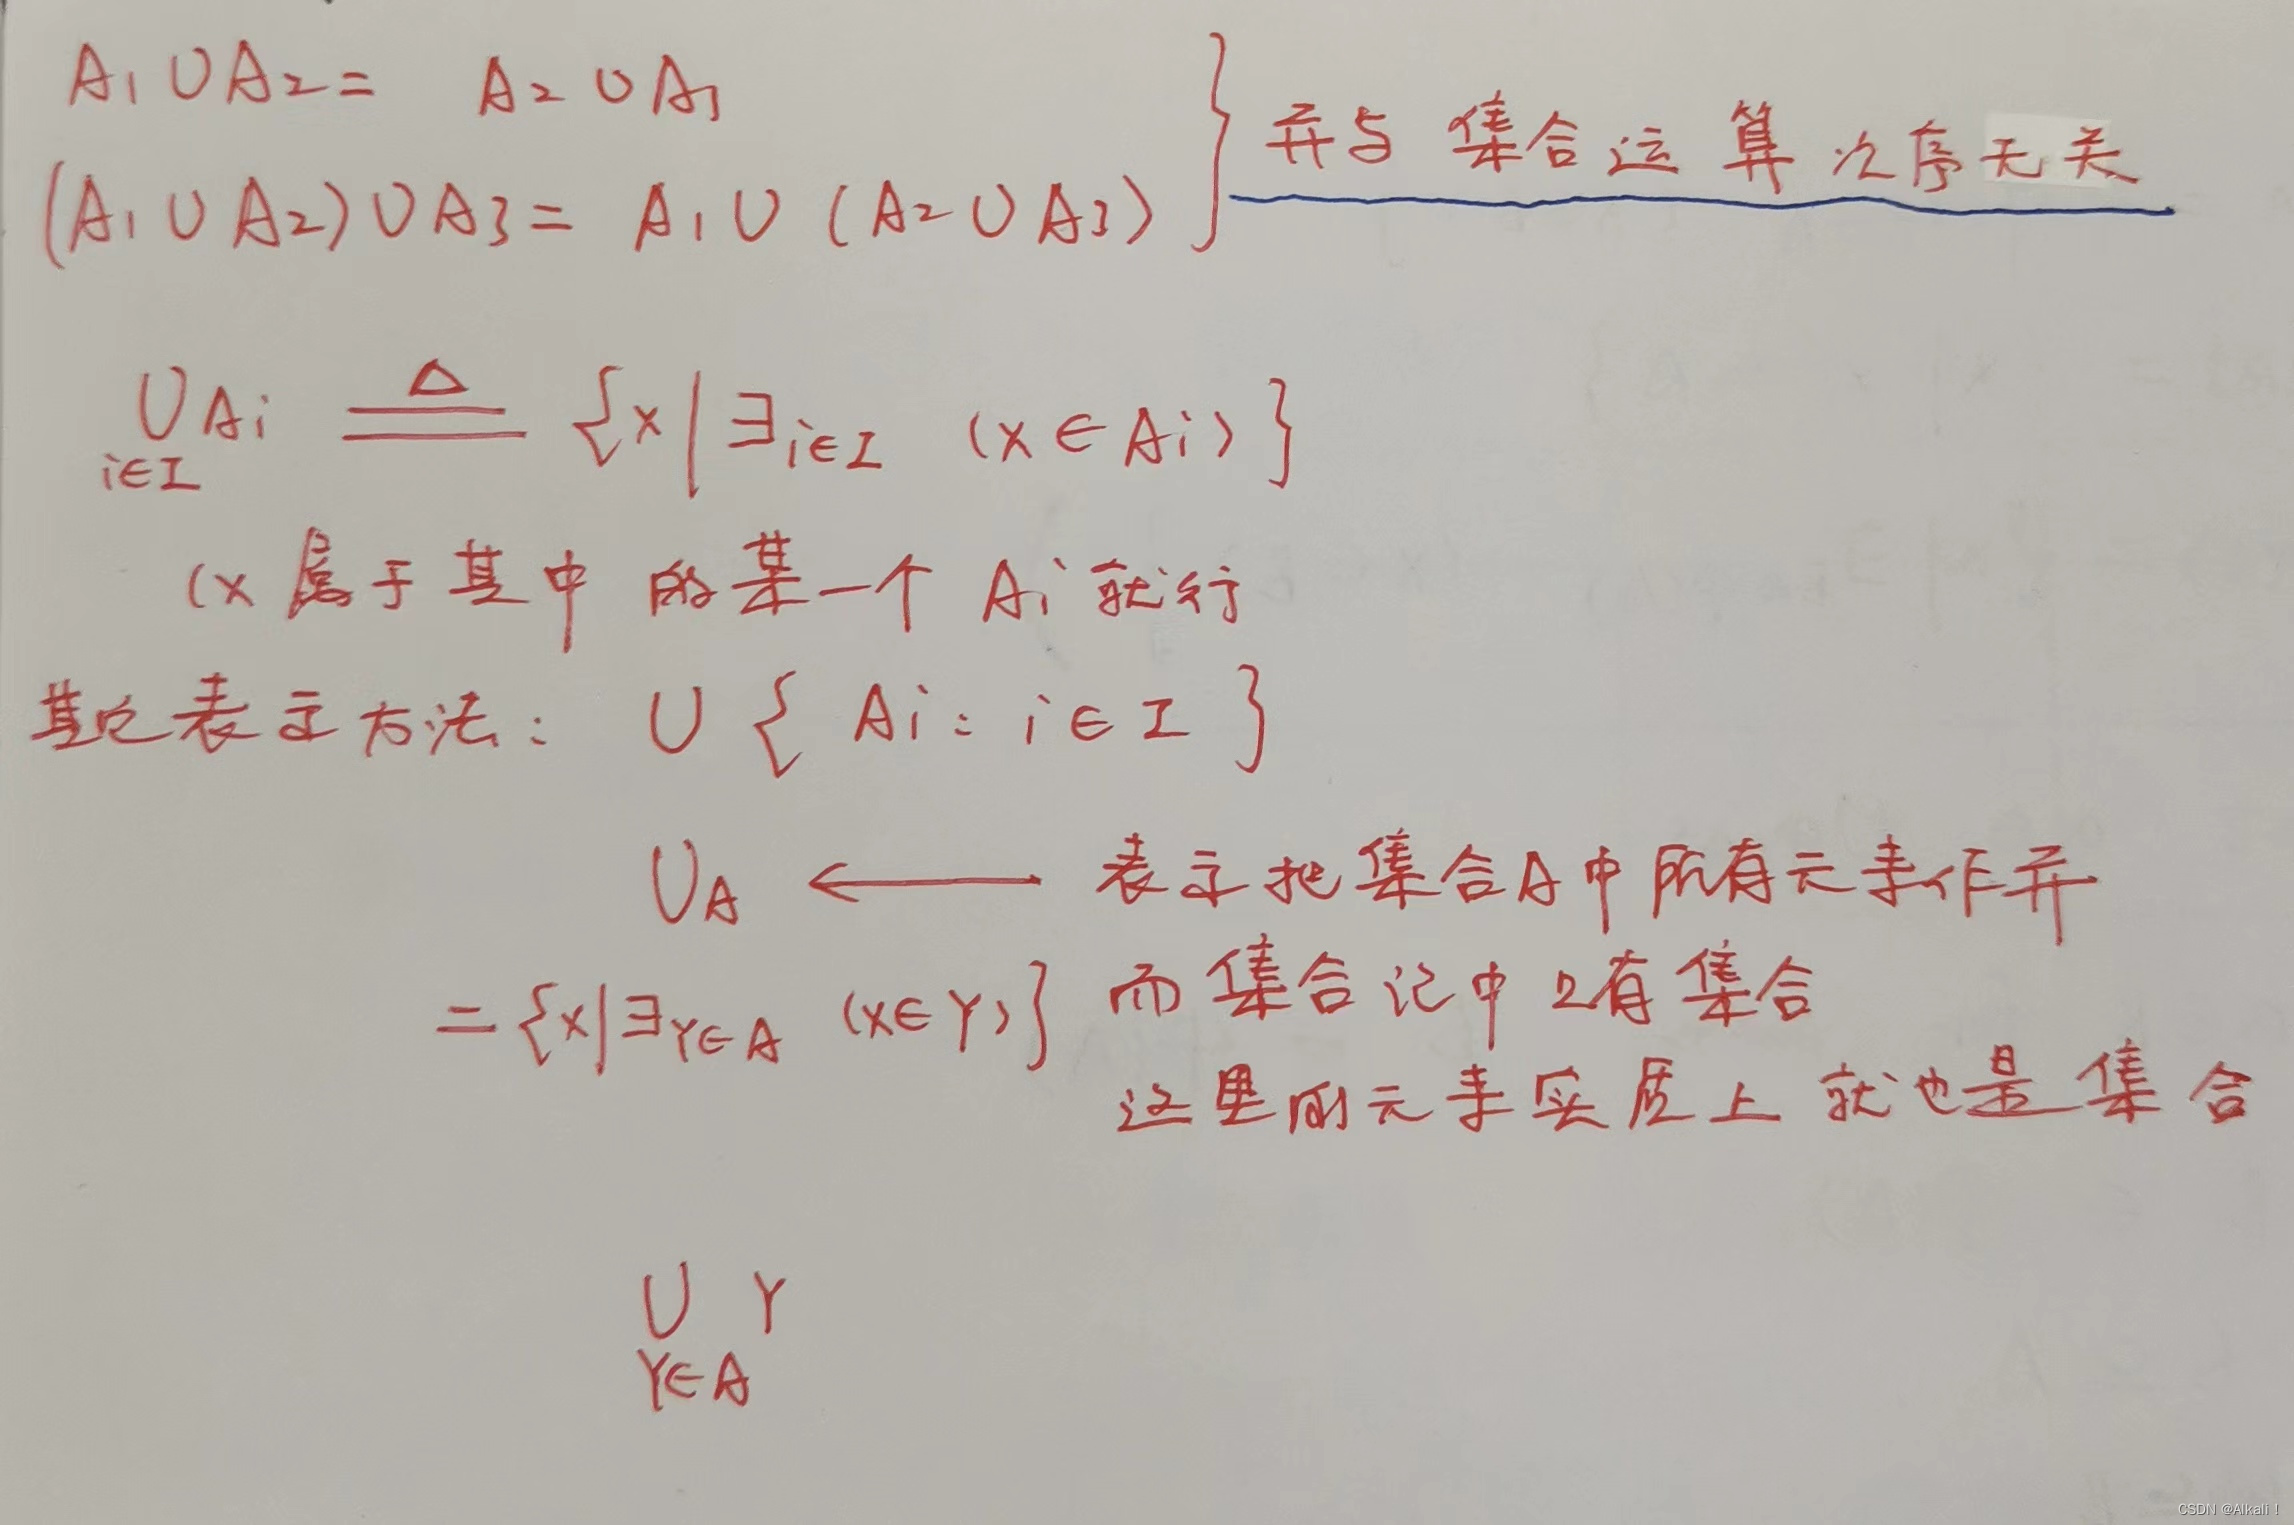 A₁∪A₂= A₂∪A₁
(A₁∪A₂)∪A₃= A₁∪(A₂∪A₃)
并与集合运算次序无关
∪Aᵢ ≜ {x|∃i∈I (x∈Aᵢ)}
i∈I
(x属于其中的某一个Aᵢ就行
其它表示方法: ∪{Ai: i∈I}
∪A ← 表示把集合A中所有元素作并
={x|∃Y∈A (x∈Y)} 而集合论中只有集合
这里的元素实质上就也是集合
∪ Y
Y∈A
CSDN @Alkali!